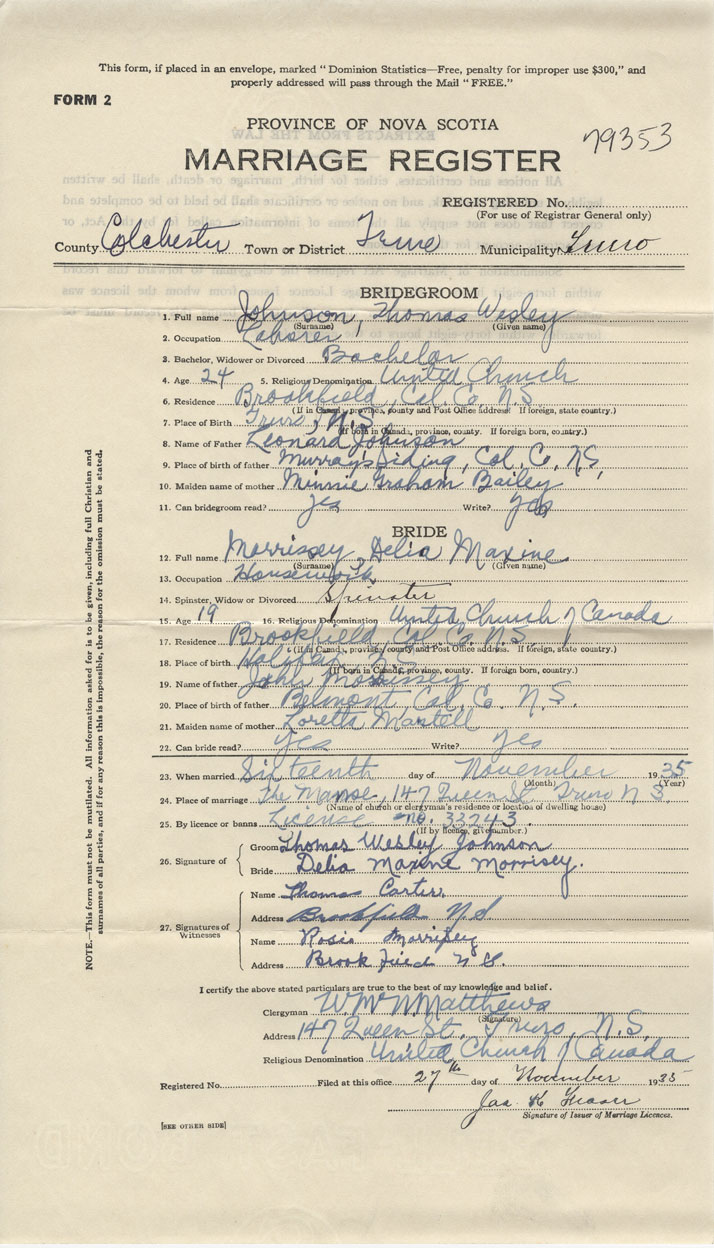 This form, if placed in an envelope, marked " Dominion Statistics—Free, penalty for improper use $300," and
properly addressed will pass through the Mail " FREE."
FORM 2
PROVINCE OF NOVA SCOTIA
79353
MARRIAGE REGISTER
REGISTERED No.
(For use of Registrar General only)
County Colchester Town or District Truro Municipality Truro
BRIDEGROOM
1. Full name Johnson, Thomas Wesley
(Surname) (Given name)
2. Occupation Laborer
3. Bachelor, Widower or Divorced Bachelor
4. Age 24 5. Religious Denomination United Church
6. Residence Brookfield, Col. Co. N.S.
(If in Canada, province, county and Post Office address. If foreign, state country.)
7. Place of Birth Truro, N.S.
(If born in Canada, province, county. If foreign born, country.)
8. Name of Father Leonard Johnson
9. Place of birth of father Murray's Siding, Col. Co, NS,
10. Maiden name of mother Minnie Graham Bailey
11. Can bridegroom read? yes Write? yes
BRIDE
12. Full name Morrissey, Delia Maxine
(Surname) (Given name)
13. Occupation Housework
14. Spinster, Widow or Divorced Spinster
15. Age 19 16. Religious Denomination United Church of Canada
17. Residence Brookfield, Col. Co. N.S.
(If in Canada, province, county and Post Office address. If foreign, state country.)
18. Place of birth Halifax, N.S.
(If born in Canada, province, county. If foreign born, country.)
19. Name of father John Morrissey
20. Place of birth of father Belmont, Col. Co. N.S.
21. Maiden name of mother Loretta Martell
22. Can bride read? Yes Write? Yes
23. When married Sixteenth day of November 1935
(Month) (Year)
24. Place of marriage The Manse, 147 Queen St. Truro N S
(Name of church or clergyman's residence or location of dwelling house)
25. By licence or banns License no. 33243.
(If by licence, give number.)
26. Signature of
Groom Thomas Wesley Johnson
Bride Delia Maxine Morrisey.
27. Signatures of
Witnesses
Name Thomas Carter.
Address Brookfield N.S
Name Rosie Morrisey
Address Brookfield N S.
I certify the above stated particulars are true to the best of my knowledge and belief.
Clergyman W. McN Matthews
(Signature)
Address 147 Queen St., Truro, N.S.
Religious Denomination United Church of Canada
Registered No. Filed at this office 27th day of November 1935
Jas K Fraser
Signature of Issuer of Marriage Licences.
[SEE OTHER SIDE]
NOTE.—This form must not be mutilated. All information asked for is to be given, including full Christian and
surnames of all parties, and if for any reason this is impossible, the reason for the omission must be stated.